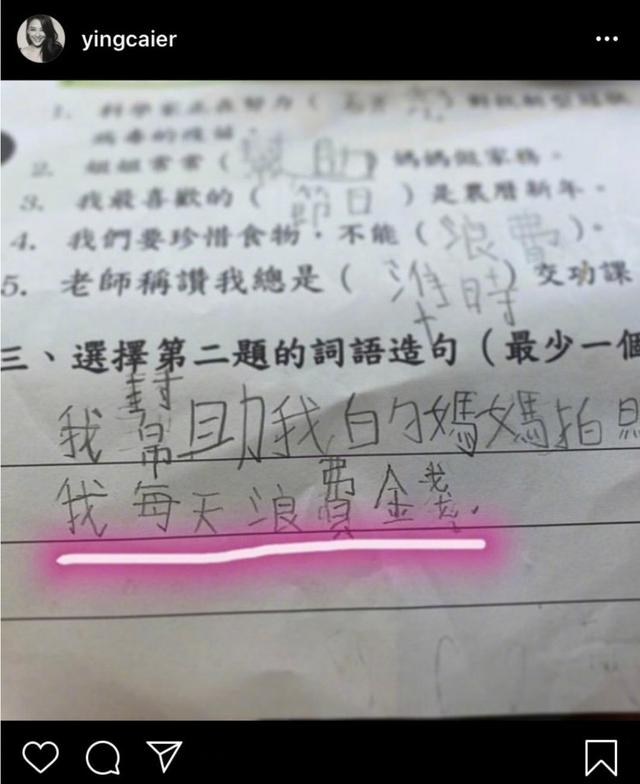 yingcaier
1. 科學家正在努力（
病毒的疫苗。
2. 姐姐常常（幫助）媽媽做家務。
3. 我最喜歡的（節日）是農曆新年。
4. 我們要珍惜食物，不能（浪費）。
5. 老師稱讚我總是（準時）交功課
三、選擇第二題的詞語造句（最少一個
我幫助我的媽媽拍照
我每天浪費金錢。